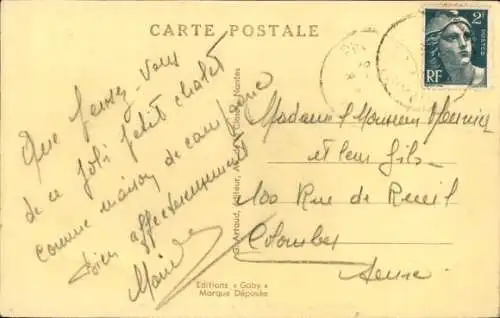 CARTE POSTALE
2F
POSTES
RF
Que pensez-vous
de ce joli petit chalet
comme maison de campagne
bien affectueusement
Madame & Monsieur
et leur fils
100 Rue de Reuil
Colombes
Seine
Artaud, Editeur, Nantes
Editions « Gaby »
Marque Déposée